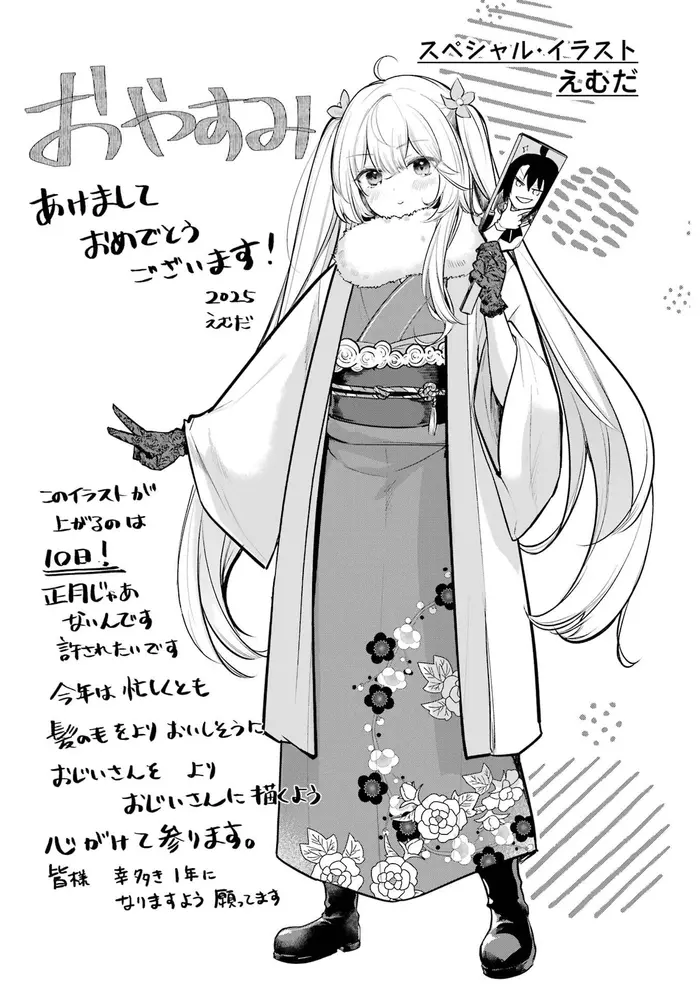 スペシャル・イラスト
えむだ
おやすみ
あけまして
おめでとう
ございます!
2025
えむだ
このイラストが
上がるのは
10日!
正月じゃあ
ないんです
許されたいです
今年は忙しくとも
髪の毛をよりおいしそうに
おじいさんを より
おじいさんに描くよう
心がけて参ります。
皆様 幸多き1年に
なりますよう願ってます